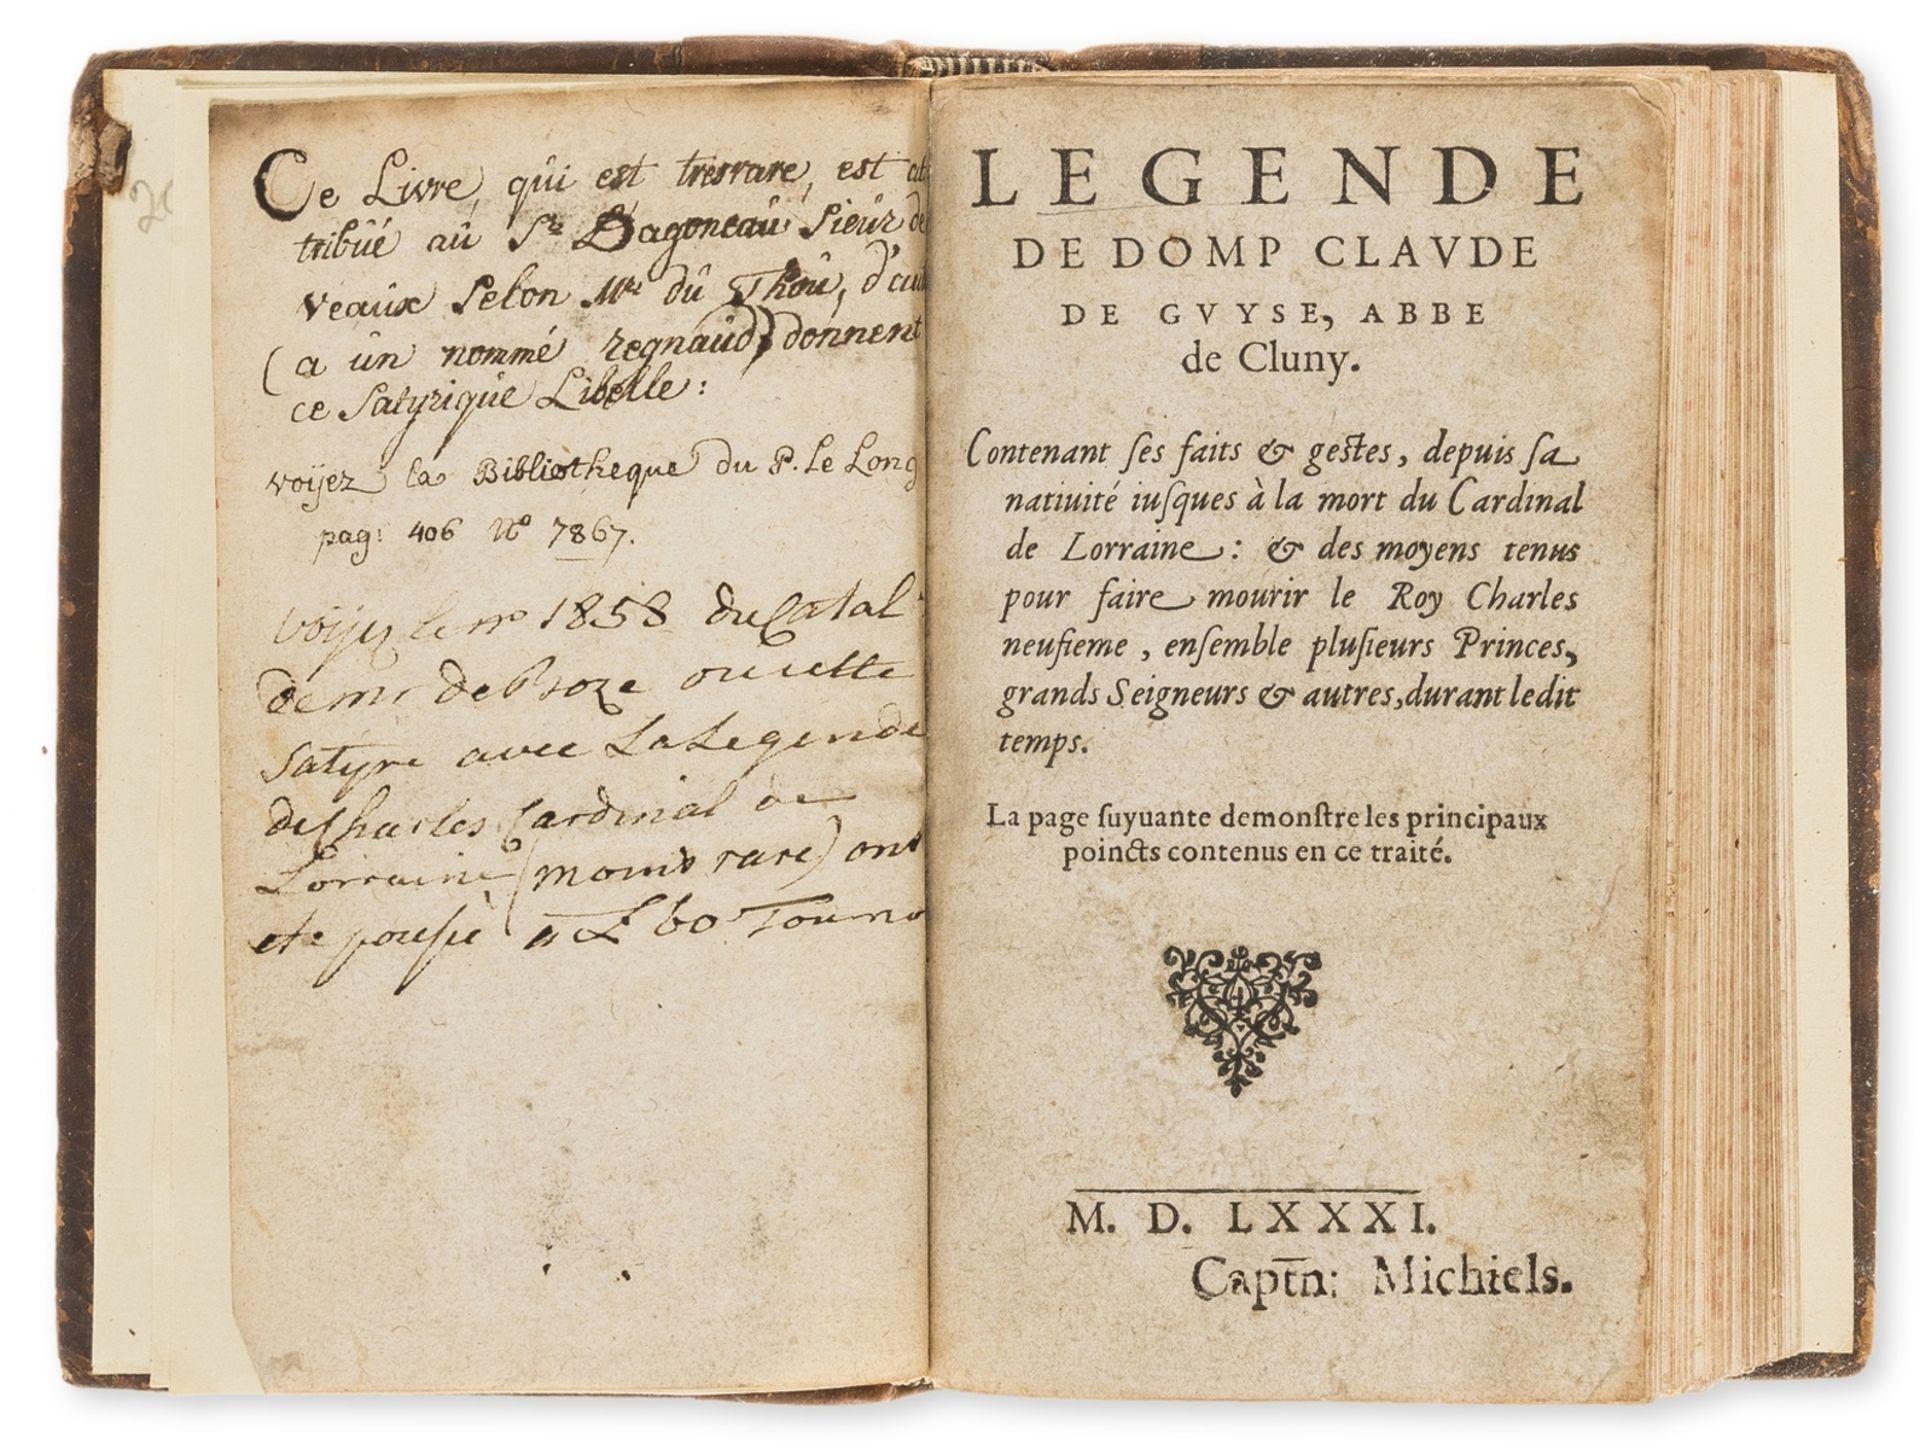 Ce Livre, qui est tresrare, est at
tribüé aü Sr Dagoneaü Sieür de
veaüx Selon Mre dü Thoü, d'au
(a ün nommé regnaüd) donnent
ce Satyriqüe Libelle:
voijez la Bibliotheque du P. Le Long
pag: 406 No 7867.
voijez le no 1858 du Catal
de mr de Boze ou cette
Satyre avec La Legende
de Charles Cardinal de
Lorraine (moins rare) ont
ete pousse a 60
LEGENDE
DE DOMP CLAVDE
DE GVYSE, ABBE
de Cluny.
Contenant ſes faits & gestes, depuis ſa
natiuité iuſques à la mort du Cardinal
de Lorraine : & des moyens tenus
pour faire mourir le Roy Charles
neufieme , enſemble pluſieurs Princes,
grands Seigneurs & autres, durant ledit
temps.
La page ſuyuante demonſtre les principaux
poincts contenus en ce traité.
M. D. LXXXI.
Captn: Michiels.